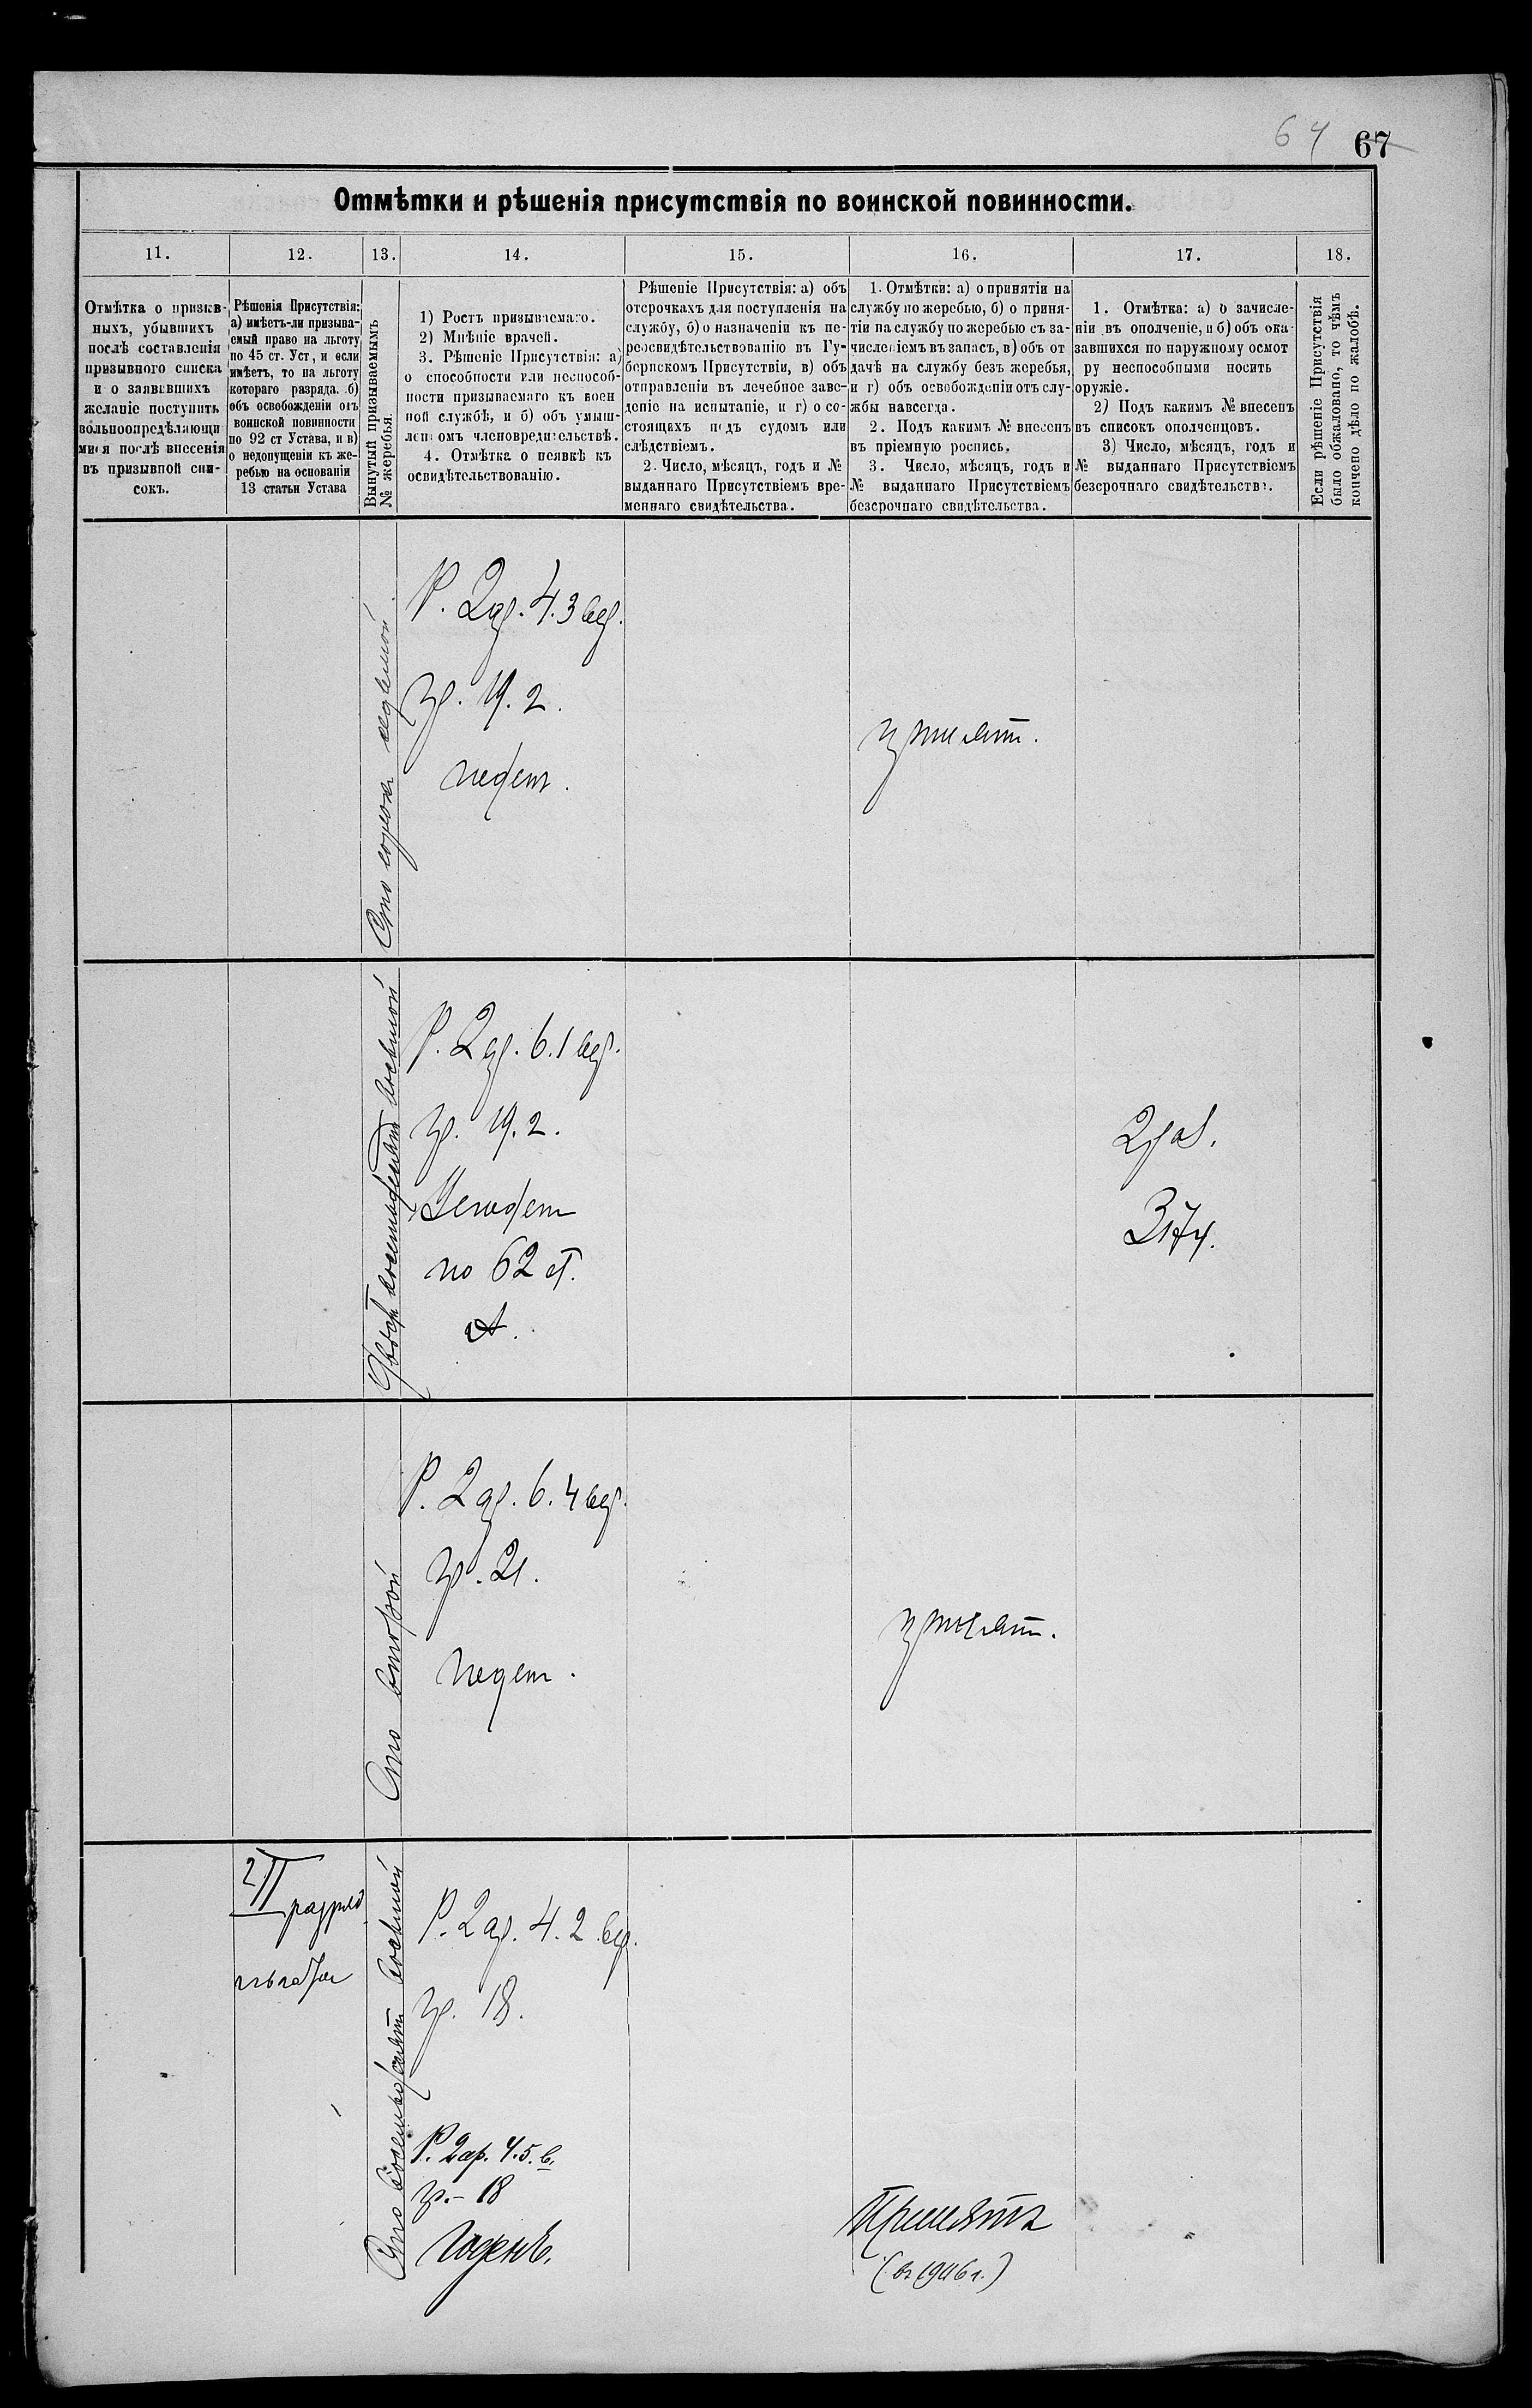 64 67
Отмѣтки и рѣшенія присутствія по воинской повинности.
11. 12. 13. 14. 15. 16. 17. 18.
Отмѣтка о призыв-
ныхъ, убывшихъ
послѣ составленія
призывного списка
и о заявившихъ
желаніе поступить
вольноопредѣляющи
мися послѣ внесенія
въ призывной спи-
сокъ.
Рѣшенія Присутствія:
а) имѣетъ-ли призыва-
емый право на льготу
по 45 ст. Уст, и если
имѣетъ, то на льготу
котораго разряда. б)
объ освобожденіи отъ
воинской повинности
по 92 ст Устава, и в)
о недопущеніи къ же-
ребью на основаніи
13 статьи Устава
Вынутый призываемымъ
№ жеребья.
1) Ростъ призываемаго.
2) Мнѣніе врачей.
3. Рѣшеніе Присутствія: а)
о способности или неспособ-
ности призываемаго къ воен
ной службѣ, и б) объ умыш-
ленномъ членовредительствѣ.
4. Отмѣтка о неявкѣ къ
освидѣтельствованію.
Рѣшеніе Присутствія: а) объ
отсрочкахъ для поступленія на
службу, б) о назначеніи къ пе-
реосвидѣтельствованію въ Гу-
бернскомъ Присутствіи, в) объ
отправленіи въ лечебное заве-
деніе на испытаніе, и г) о со-
стоящихъ подъ судомъ или
слѣдствіемъ.
2. Число, мѣсяцъ, годъ и №
выданнаго Присутствіемъ вре-
меннаго свидѣтельства.
1. Отмѣтки: а) о принятіи на
службу по жеребью, б) о приня-
тіи на службу по жеребью съ за-
численіемъ въ запасъ, в) объ от
дачѣ на службу безъ жеребья,
и г) объ освобожденіи отъ слу-
жбы навсегда.
2. Подъ какимъ № внесенъ
въ пріемную роспись.
3. Число, мѣсяцъ, годъ и
№ выданнаго Присутствіемъ
безсрочнаго свидѣтельства.
1. Отмѣтка: а) о зачисле-
ніи въ ополченіе, и б) объ ока-
завшихся по наружному осмот
ру неспособными носить
оружіе.
2) Подъ какимъ № внесенъ
въ списокъ ополченцовъ.
3) Число, мѣсяцъ, годъ и
№ выданнаго Присутствіемъ
безсрочнаго свидѣтельства.
Если рѣшеніе Присутствія
было обжаловано, то чѣмъ
кончено дѣло по жалобѣ.
Сто сорокъ седьмой
Р. 2 ар. 4.3 вер.
гр. 19.2.
годенъ.
принят.
Двѣсти восемьдесятъ восьмой
Р. 2 ар. 6.1 вер.
гр. 19.2.
Негоден
по 62 ст.
А.
2 раз.
3174.
Сто второй
Р. 2 ар. 6.4 вер.
гр. 21.
годен.
принят.
2 II разряд
Сто восемьдесятъ восьмой
Р. 2 ар. 4.2 вер.
гр. 18.
Р. 2 ар. 4.5. в.
гр. - 18
Годенъ.
Принятъ
(въ 1906 г.)